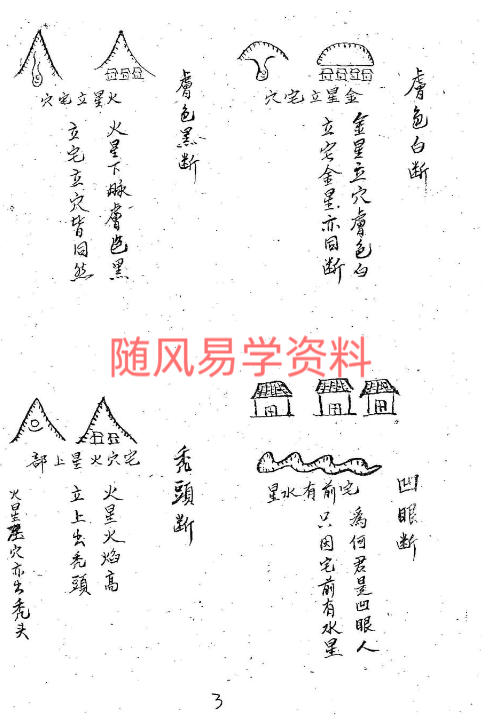 膚色白斷
金星立穴膚色白
立宅金星亦同斷
穴宅立星金
膚色黑斷
火星下脉膚色黑
立宅立穴皆同然
穴宅立星火
随风易学资料
凹眼斷
為何君是凹眼人
只因宅前有水星
星水有前宅
禿頭斷
火星火焰高
立上出禿頭
火星穴亦出禿头
部上星火穴宅
3